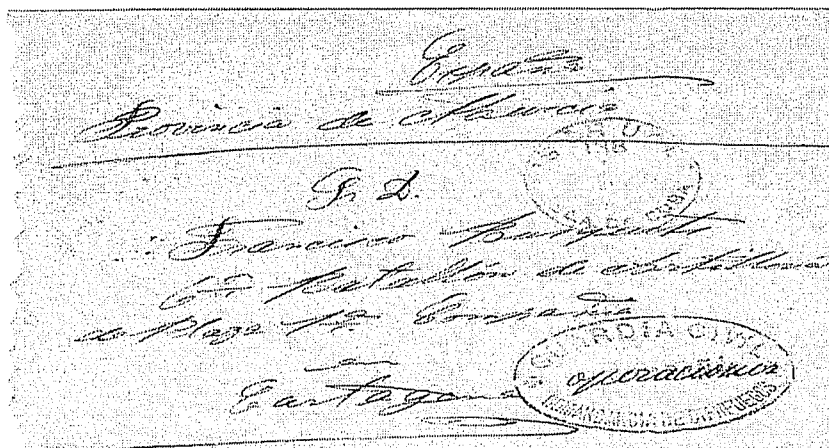 España
Provincia de Murcia
Sr. D.
Francisco
6º Batallón de Artillería
de Plaza 1ª Compañía
en
Cartagena
GUARDIA CIVIL
operaciones
COMANDANCIA DE CIENFUEGOS